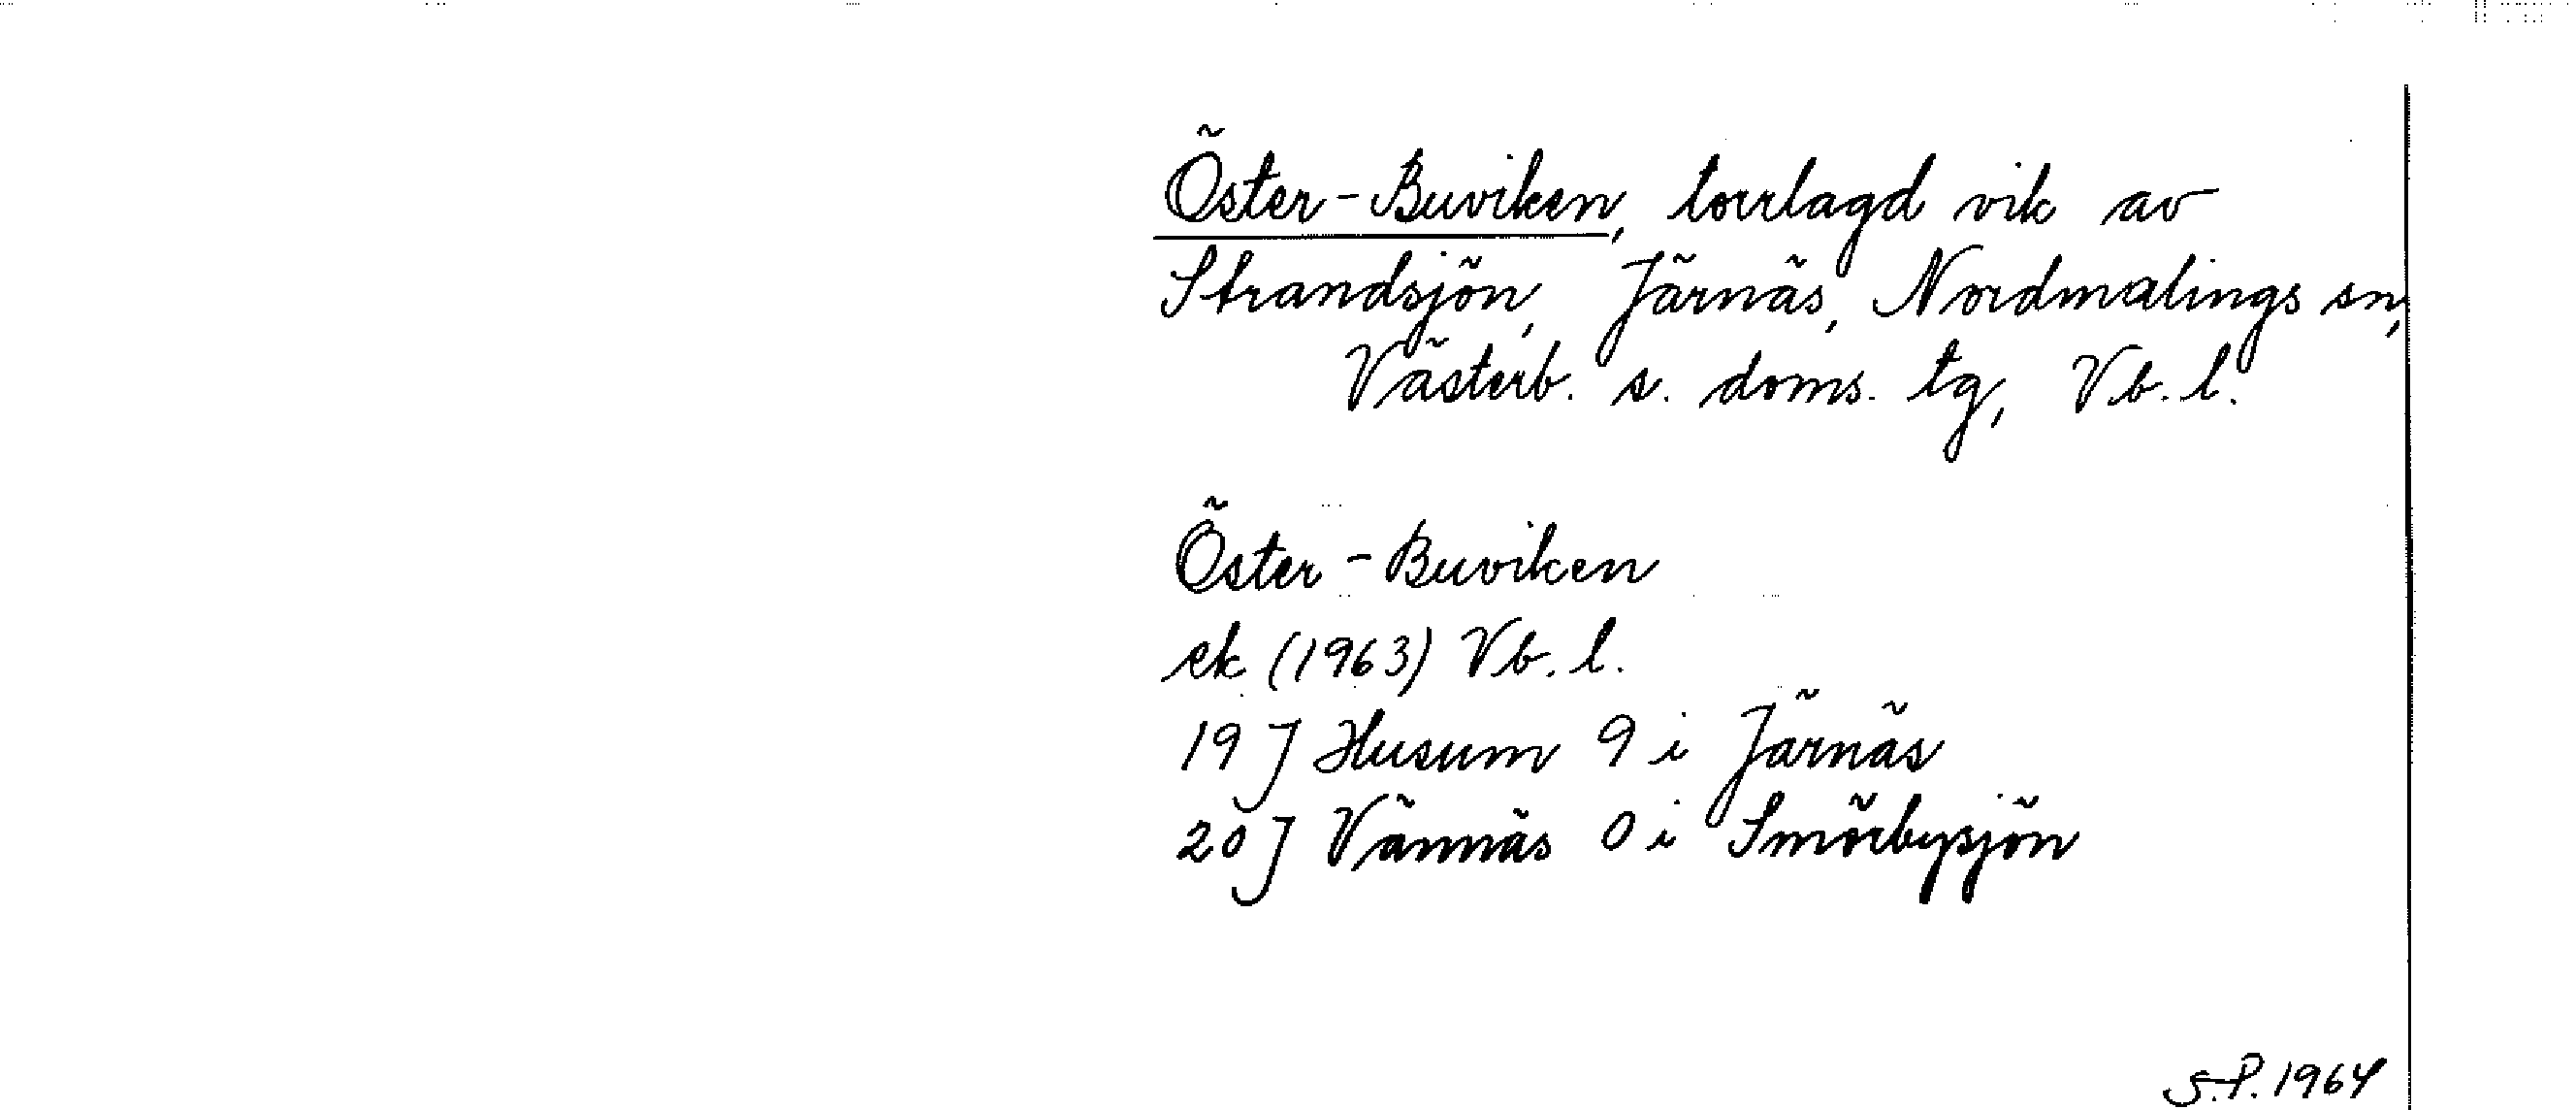 Öster-Buviken, torrlagd vik av
Strandsjön, Järnäs, Nordmalings sn,
Västerb. s. doms. tg, Vb. l.
Öster-Buviken
ek (1963) Vb. l.
19 J Husum 9 i Järnäs
20 J Vännäs 0 i Smörbysjön
S.P. 1964